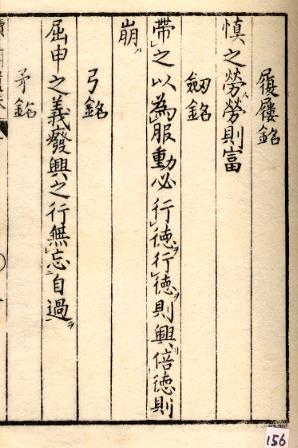 履屨銘
慎之勞勞則富
劔銘
帶之以為服動必行徳行徳則興倍徳則
崩
弓銘
屈申之義廢興之行無忘自過
矛銘
156